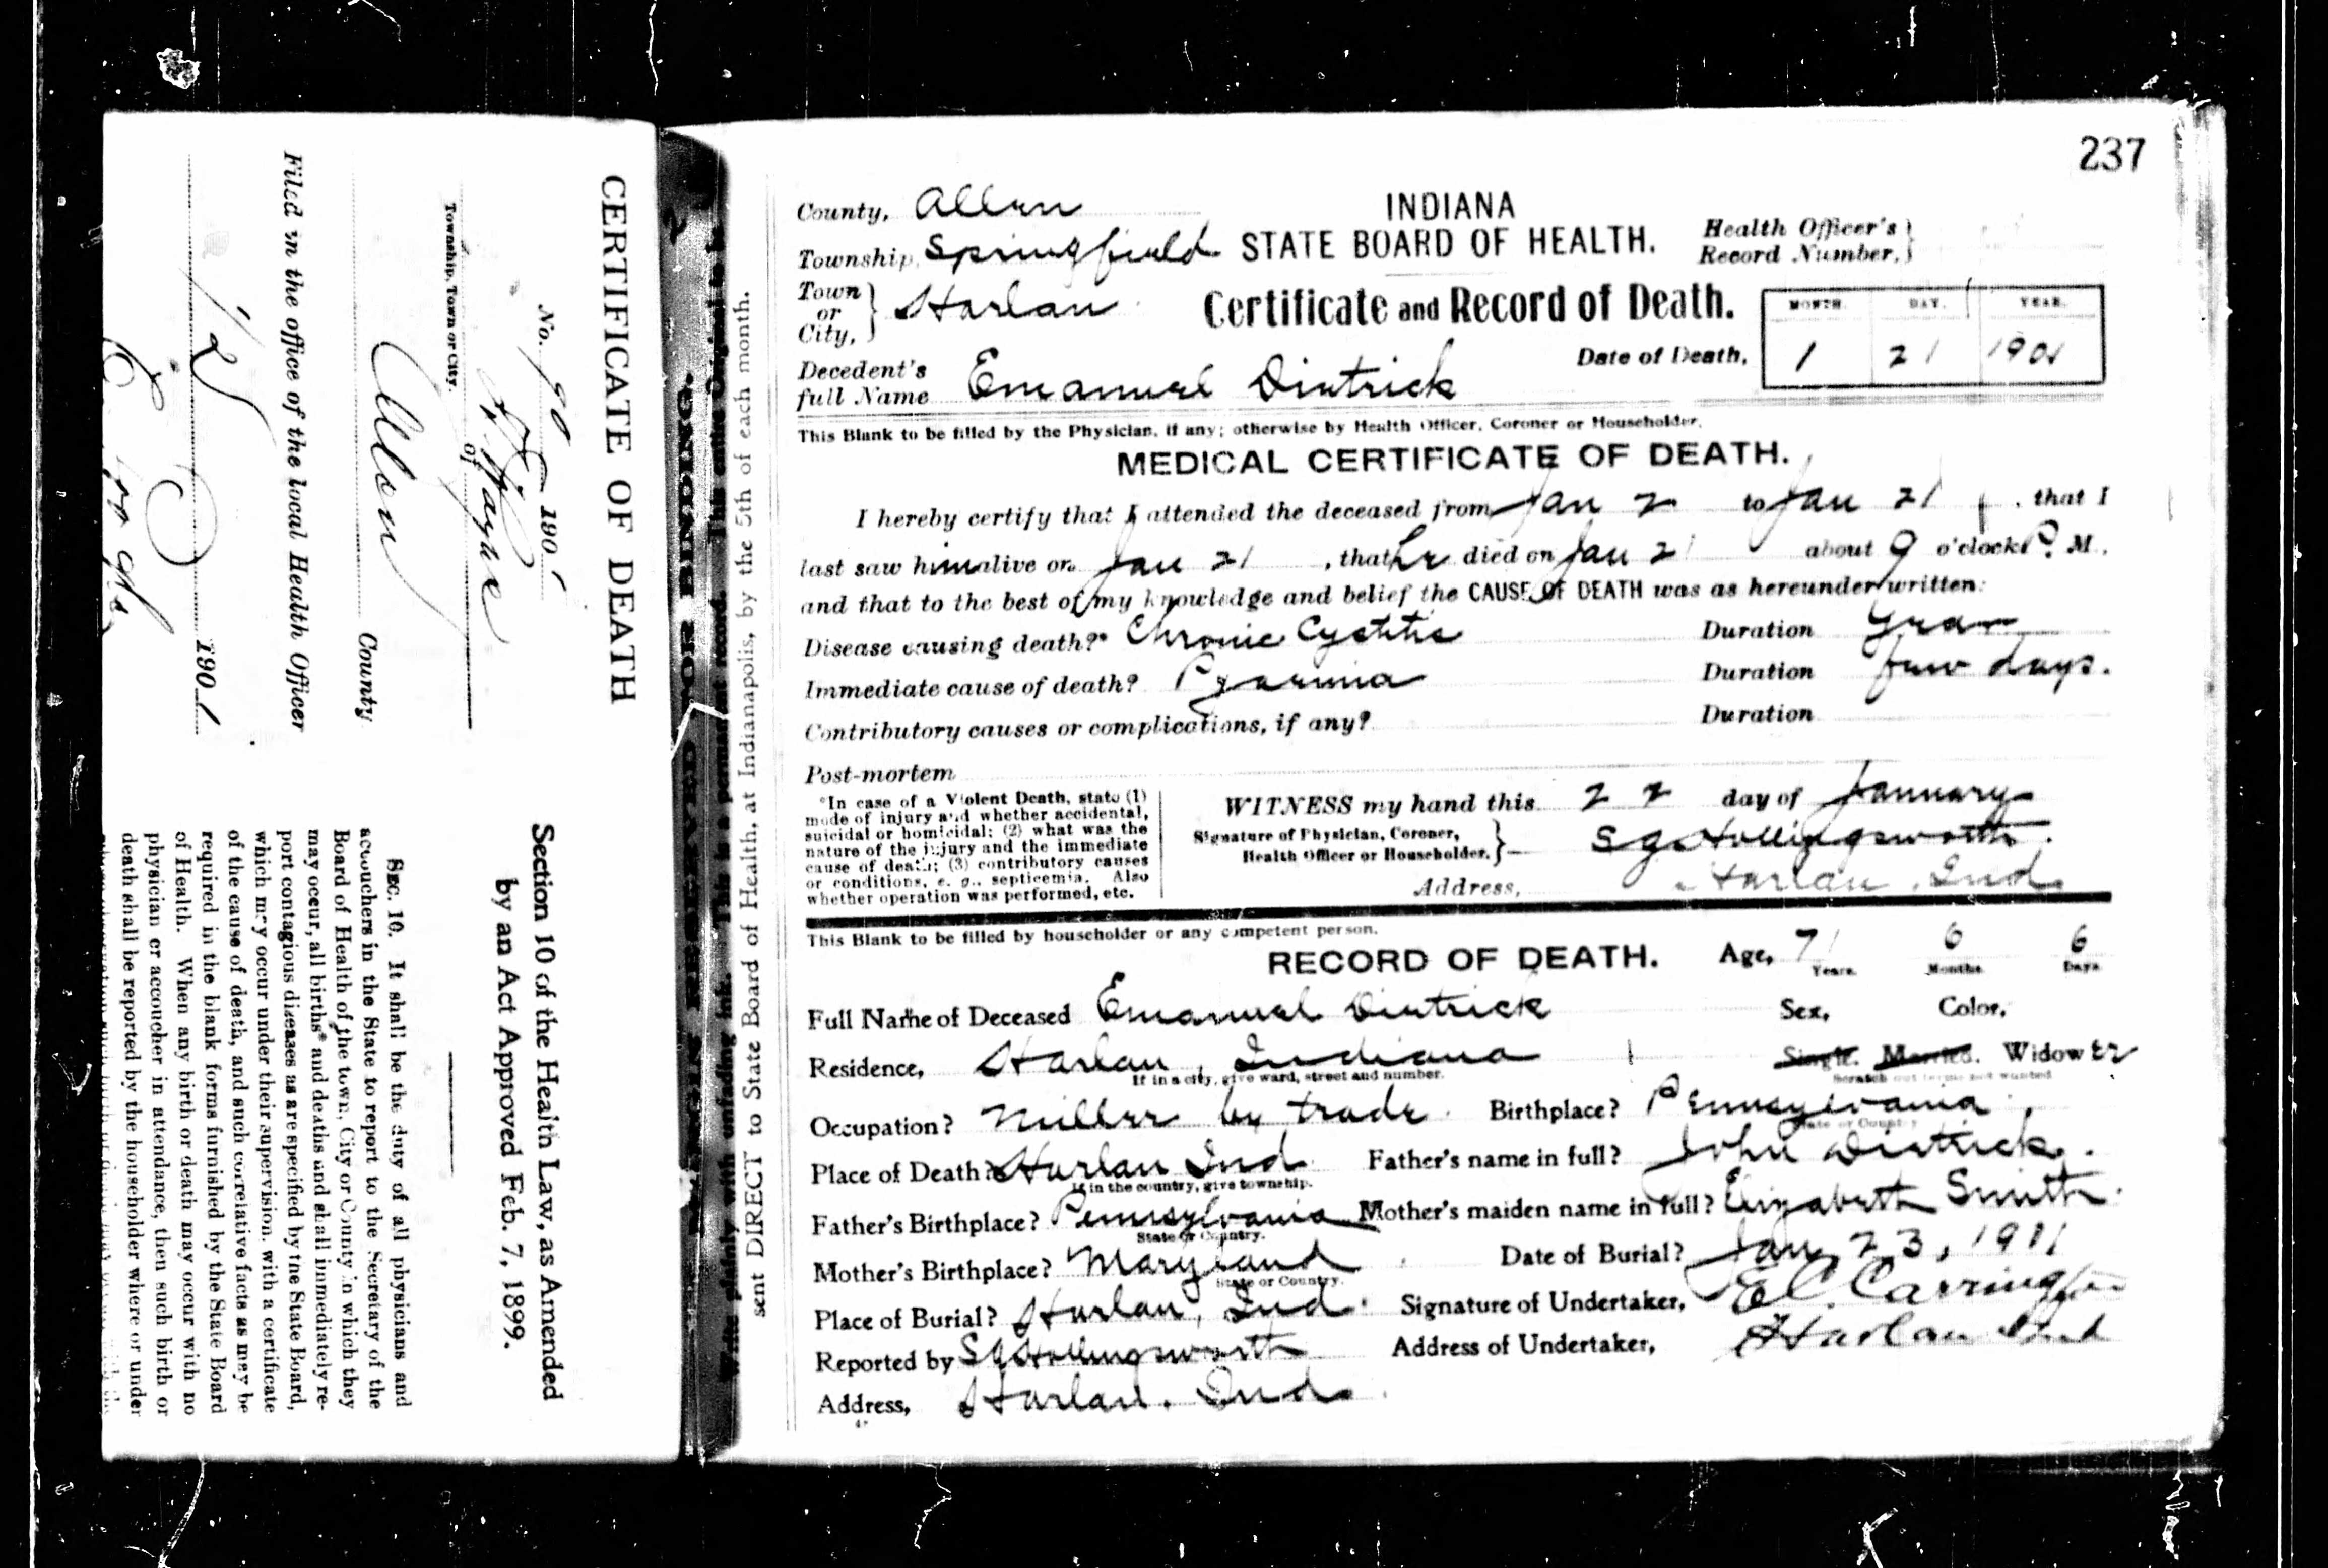 237
County, Allen
INDIANA
Township, Springfield STATE BOARD OF HEALTH.
Health Officer's
Record Number,
Town
or
City, Harlan
Certificate and Record of Death.
MONTH. DAY. YEAR.
Date of Death, 1 21 1901
Decedent's
full Name Emanuel Dietrick
This Blank to be filled by the Physician, if any; otherwise by Health Officer, Coroner or Householder.
MEDICAL CERTIFICATE OF DEATH.
I hereby certify that I attended the deceased from Jan 2 to Jan 21, that I
last saw him alive on Jan 21, that he died on Jan 21 about 9 o'clock P. M.
and that to the best of my knowledge and belief the CAUSE OF DEATH was as hereunder written:
Disease causing death?* Chronic Cystitis Duration year
Immediate cause of death? Pyaemia Duration few days.
Contributory causes or complications, if any? Duration
Post-mortem
*In case of a Violent Death, state (1)
mode of injury and whether accidental,
suicidal or homicidal; (2) what was the
nature of the injury and the immediate
cause of death; (3) contributory causes
or conditions, e. g., septicemia. Also
whether operation was performed, etc.
WITNESS my hand this 22 day of January
Signature of Physician, Coroner,
Health Officer or Householder, SG Hollingsworth.
Address, Harlan, Ind
This Blank to be filled by householder or any competent person.
RECORD OF DEATH. Age, 71 Years 6 Months 6 Days
Full Name of Deceased Emanuel Dietrick Sex, Color,
Residence, Harlan, Indiana Single. Married. Widower
If in a city, give ward, street and number. Scratch out terms not wanted
Occupation? Miller by trade Birthplace? Pennsylvania
State or Country
Place of Death? Harlan Ind Father's name in full? John Dietrick.
If in the country, give township.
Father's Birthplace? Pennsylvania Mother's maiden name in full? Elizabeth Smith
State or Country.
Mother's Birthplace? Maryland Date of Burial? Jan 23, 1901
State or Country.
Place of Burial? Harlan, Ind. Signature of Undertaker, E.C. Carrington
Reported by SG Hollingsworth Address of Undertaker, Harlan Ind
Address, Harlan. Ind
sent DIRECT to State Board of Health, at Indianapolis, by the 5th of each month.
CERTIFICATE OF DEATH
No. 90 1901
Ft Wayne
Township, Town or City.
of
Allen County
Filed in the office of the local Health Officer
1901
Section 10 of the Health Law, as Amended
by an Act Approved Feb. 7, 1899.
SEC. 10. It shall be the duty of all physicians and
accouchers in the State to report to the Secretary of the
Board of Health of the town, City or County in which they
may occur, all births and deaths and shall immediately re-
port contagious diseases as are specified by the State Board,
which may occur under their supervision, with a certificate
of the cause of death, and such correlative facts as may be
required in the blank forms furnished by the State Board
of Health. When any birth or death may occur with no
physician or accoucher in attendance, then such birth or
death shall be reported by the householder where or under